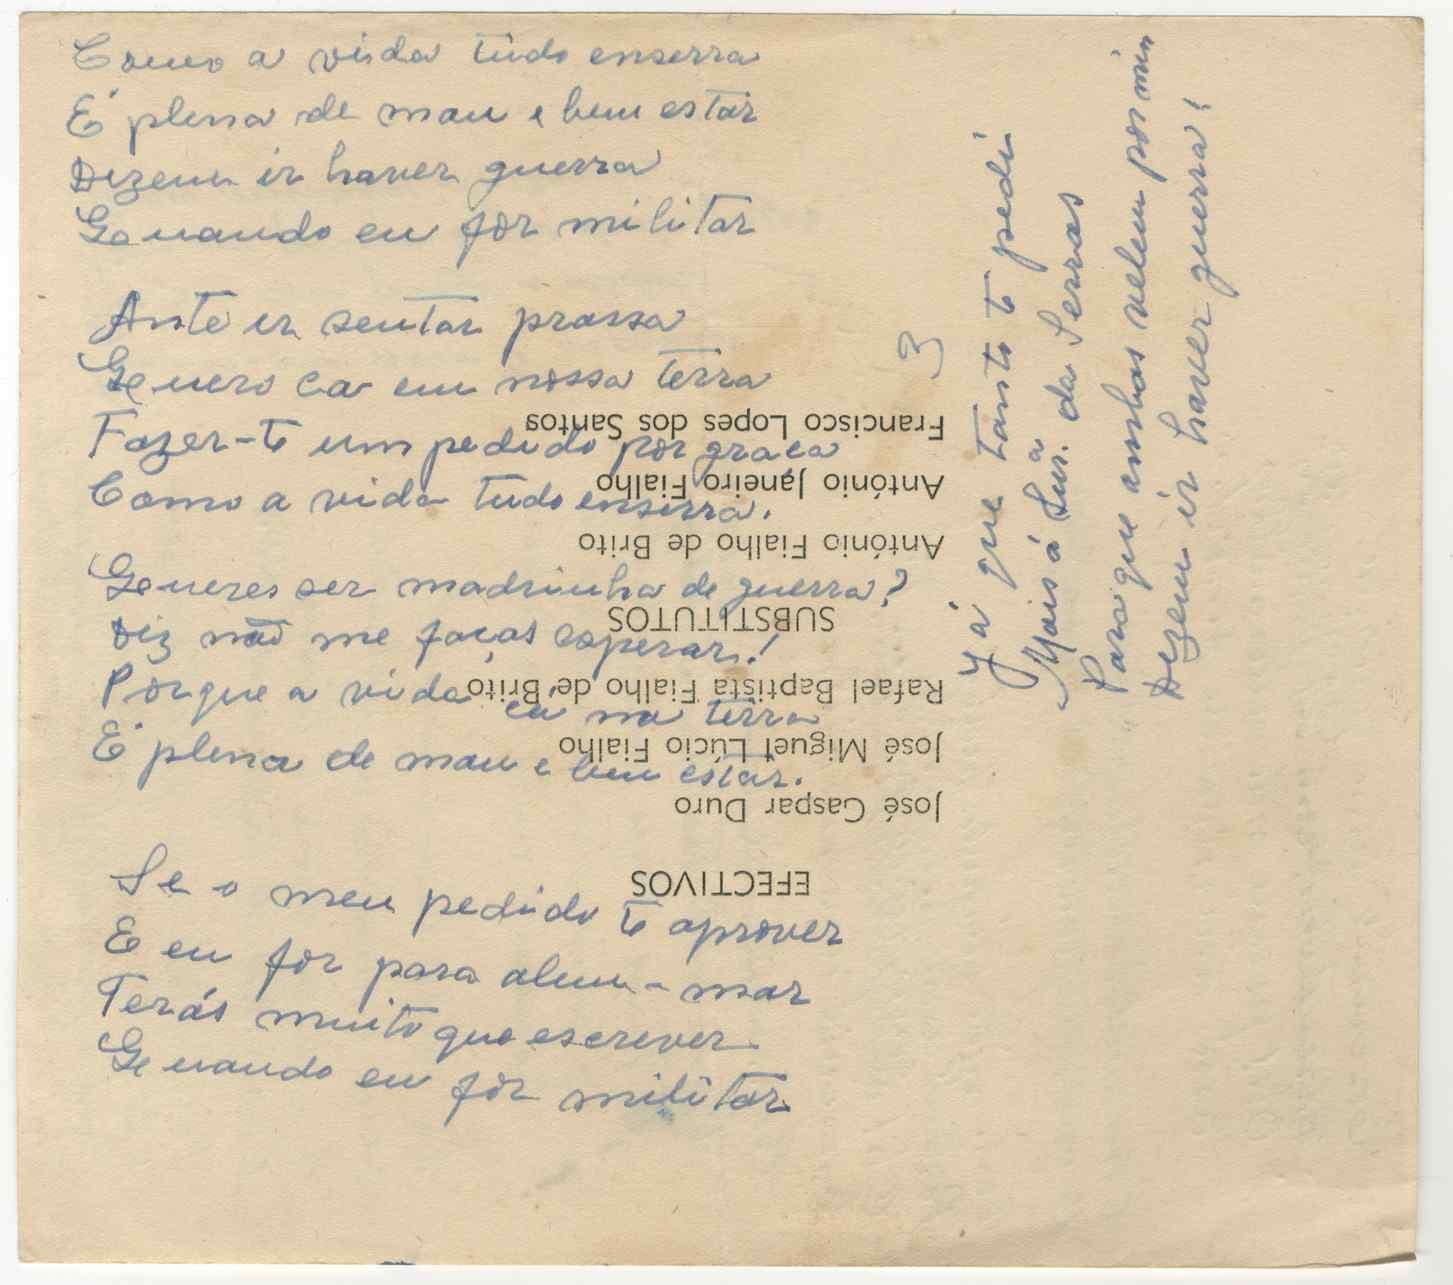 Como a vida tudo enserra
É plena de mau e bem estar
Dizem ir haver guerra
Quando eu for militar
Ante ir sentar prassa
Quero ca em nossa terra
Fazer-te um pedido por graca
Como a vida tudo enserra.
Queres ser madrinha de guerra?
Diz não me faças esperar!
Porque a vida cá na terra
É plena de mau e bem estar.
Se o meu pedido te aprover
E eu for para alem-mar
Terás muito que escrever
Quando eu for militar
3
Já que tanto te pedi
Mais á Sur.a da Serras
Para que ambas velem por mim
Dizem ir haver guerra!
EFECTIVOS
José Gaspar Duro
José Miguel Lúcio Fialho
Rafael Baptista Fialho de Brito
SUBSTITUTOS
António Fialho de Brito
António Janeiro Fialho
Francisco Lopes dos Santos